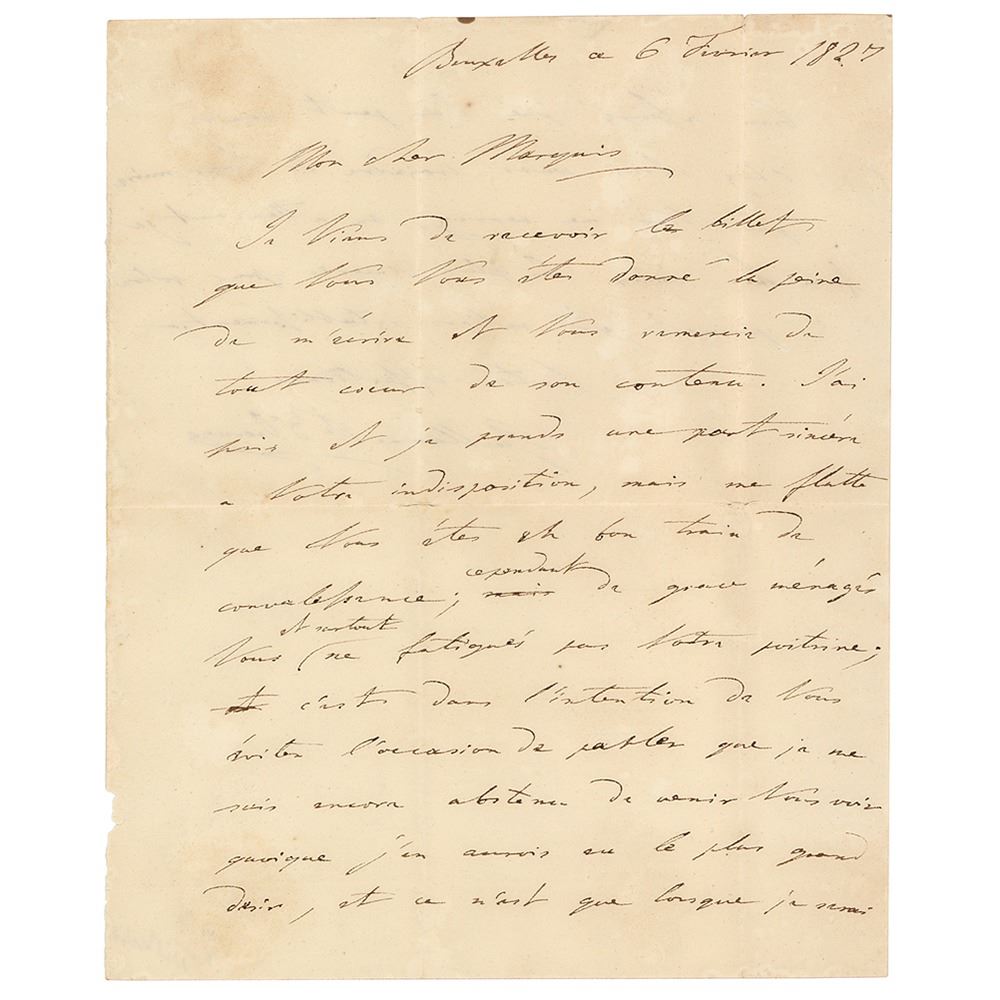 Bruxelles ce 6 Fevrier 1827
Mon cher Marquis
Je Viens de recevoir le billet
que Vous Vous êtes donné la peine
de m'écrire et Vous remercie de
tout coeur de son contenu. J'ai
pris et je prends une part sincère
a Votre indisposition, mais me flatte
que Vous êtes en bon train de
convalessance; mais cependant de grace ménagés
Vous et surtout ne fatigués pas Votre poitrine;
et c'est dans l'intention de Vous
éviter l'occasion de parler que je me
suis encore abstenu de venir Vous voir
quoique j'en aurois eu le plus grand
desir, et ce n'est que lorsque je serai